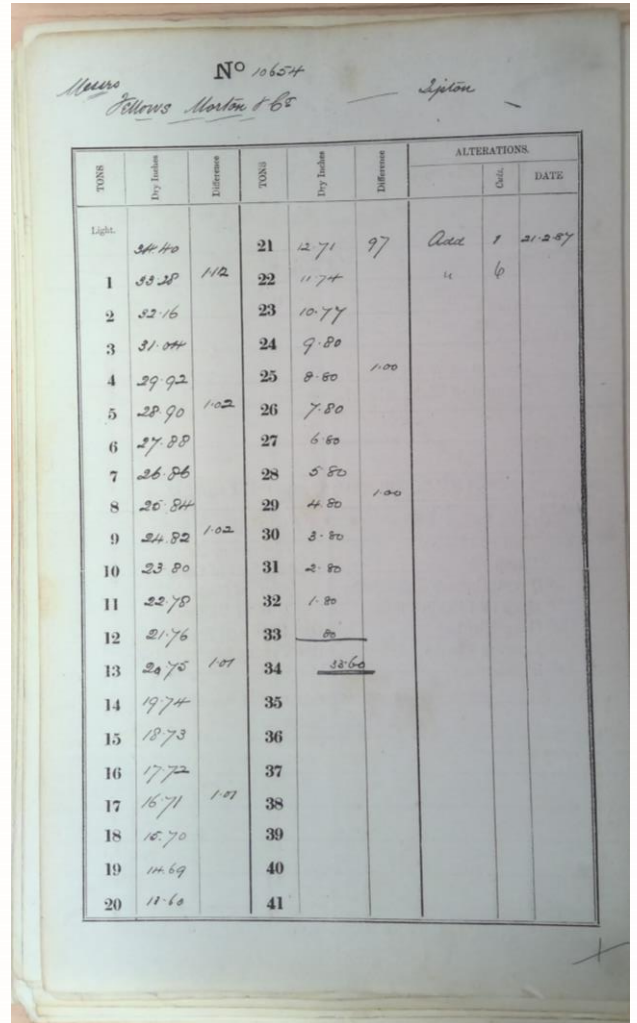 No 10654
Messrs
Fellows Morton & Co — Tipton
TONS Dry Inches Difference TONS Dry Inches Difference ALTERATIONS.
Cwts. DATE
Light. 34.40 21 12.71 97 Add 1 21-2-87
1 33.28 1.12 22 11.74 " 6
2 32.16 23 10.77
3 31.04 24 9.80
4 29.92 25 8.80 1.00
5 28.90 1.02 26 7.80
6 27.88 27 6.80
7 26.86 28 5.80
8 25.84 29 4.80 1.00
9 24.82 1.02 30 3.80
10 23.80 31 2.80
11 22.78 32 1.80
12 21.76 33 80
13 20.75 1.01 34 33.60
14 19.74 35
15 18.73 36
16 17.72 37
17 16.71 1.01 38
18 15.70 39
19 14.69 40
20 13.60 41